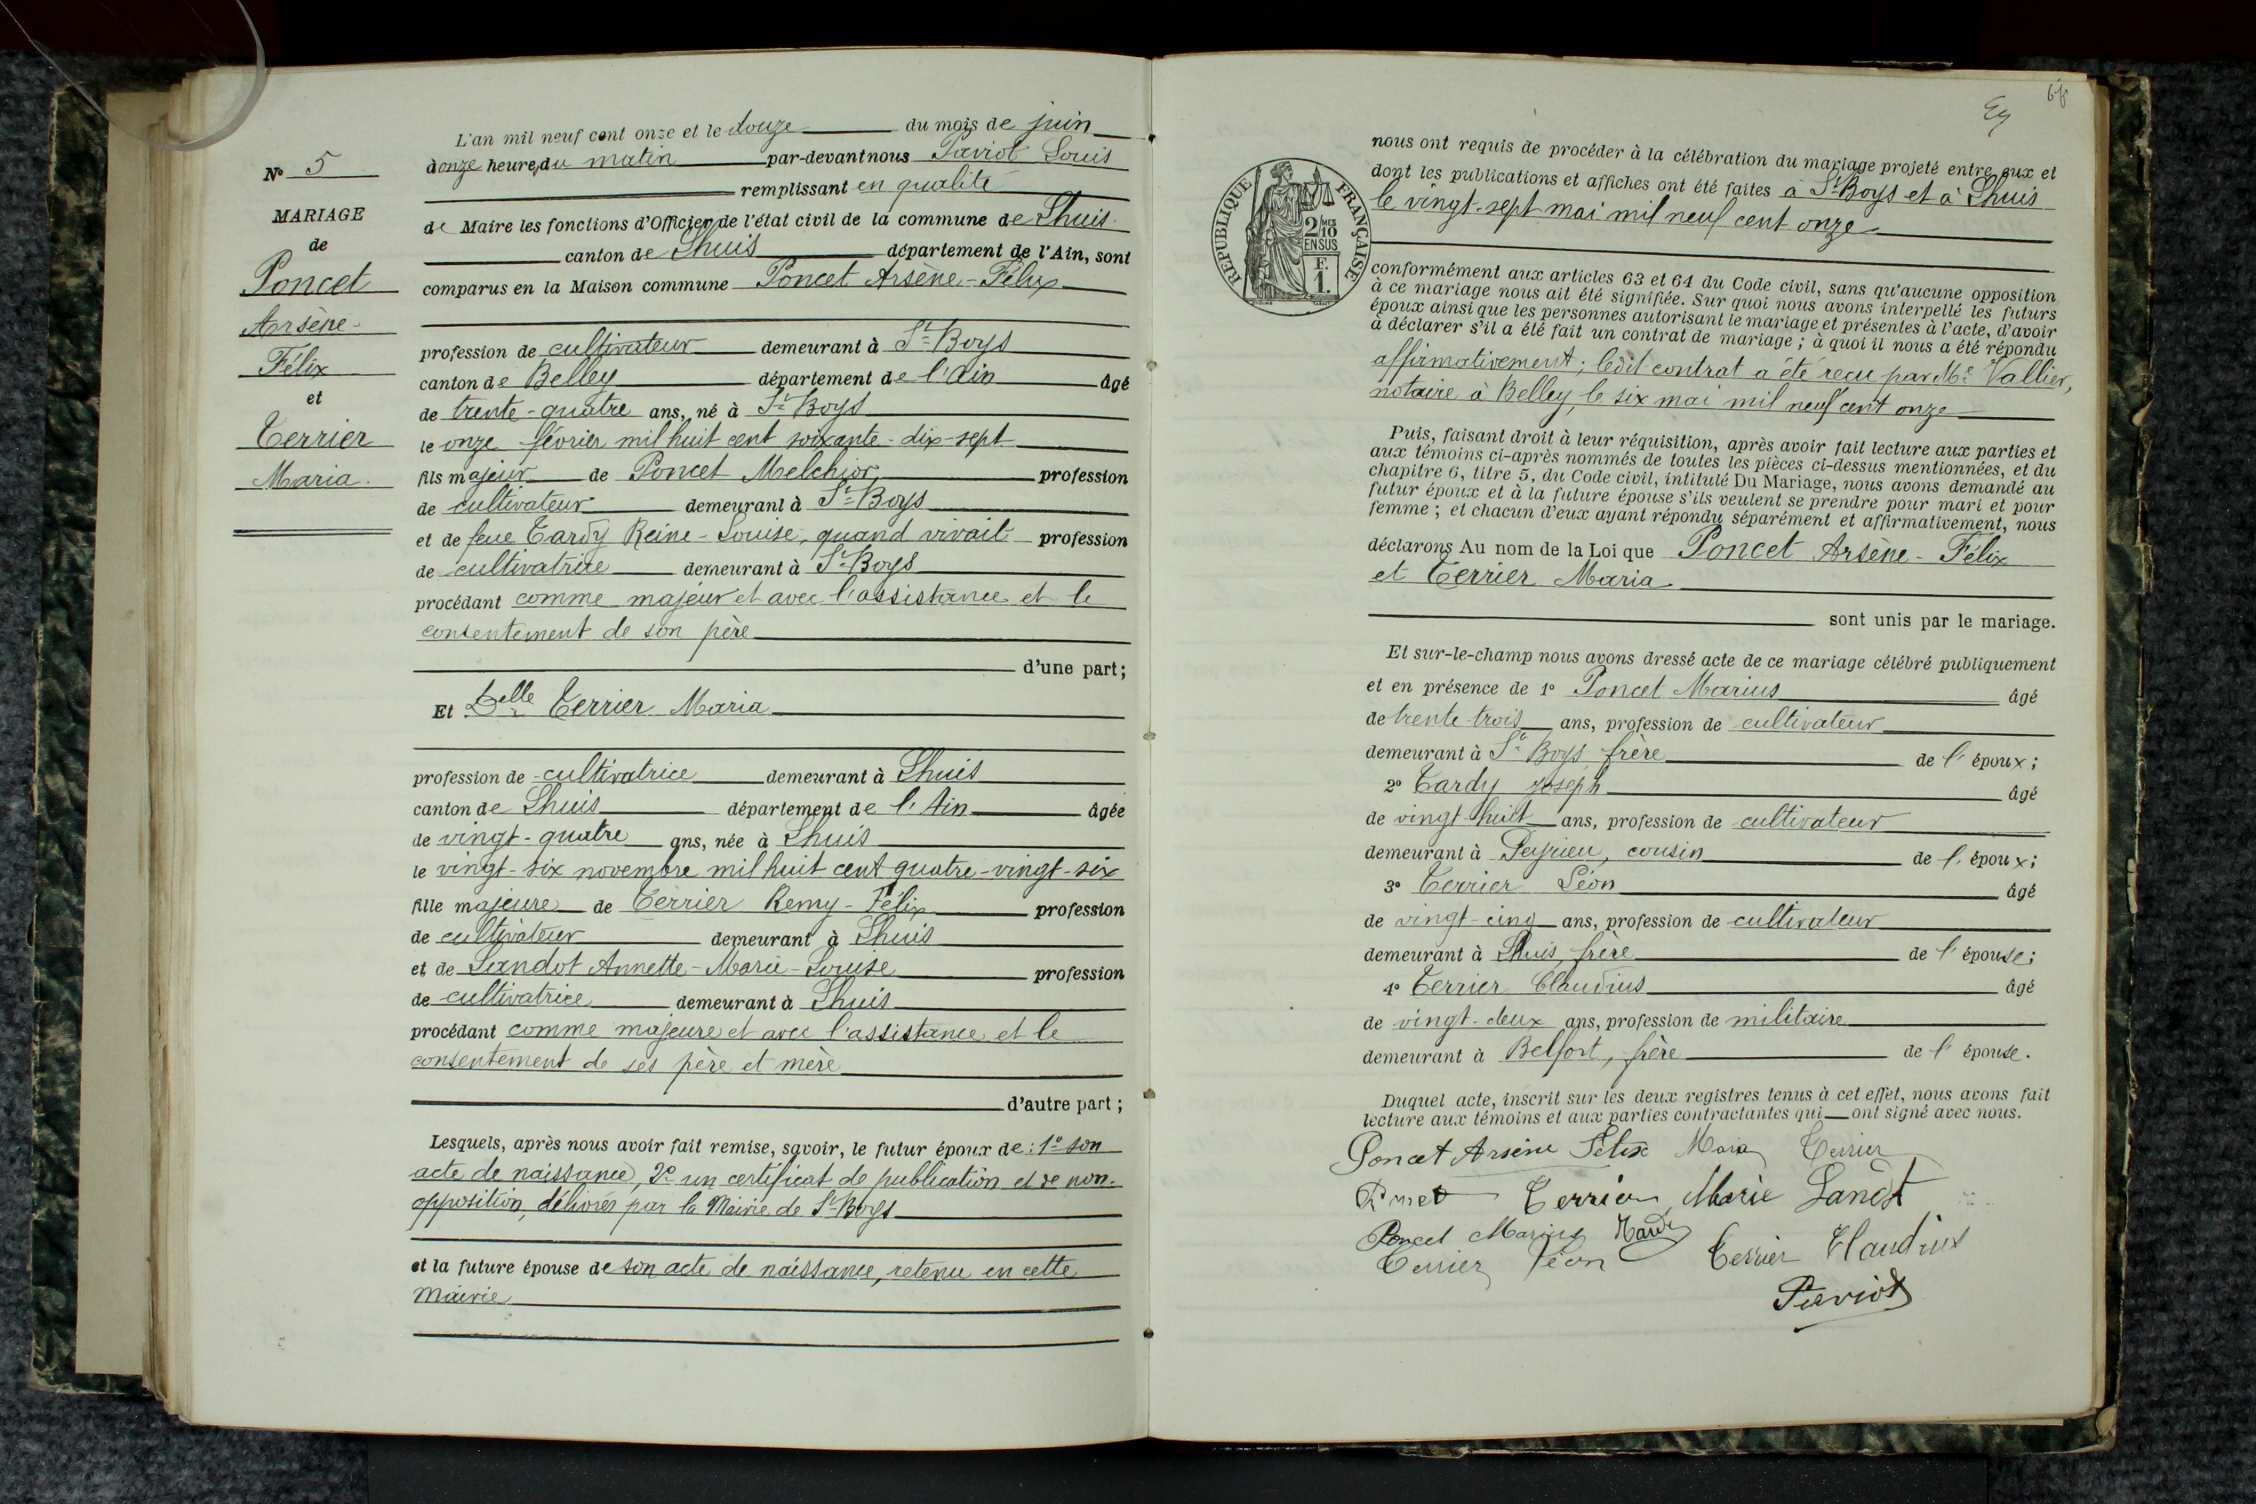 L'an mil neuf cent onze et le douze du mois de juin
à onze heures du matin par-devant nous Paviot Louis
remplissant en qualité
de Maire les fonctions d'Officier de l'état civil de la commune de Lhuis
canton de Lhuis département de l'Ain, sont
comparus en la Maison commune Poncet Arsène-Félix
profession de cultivateur demeurant à St-Boys
canton de Belley département de l'Ain âgé
de trente-quatre ans, né à St-Boys
le onze février mil huit cent soixante-dix-sept
fils majeur de Poncet Melchior profession
de cultivateur demeurant à St-Boys
et de feue Tardy Reine-Louise, quand vivait profession
de cultivatrice demeurant à St-Boys
procédant comme majeur et avec l'assistance et le
consentement de son père
d'une part;
Et Delle Terrier Maria
profession de cultivatrice demeurant à Lhuis
canton de Lhuis département de l'Ain âgée
de vingt-quatre ans, née à Lhuis
le vingt-six novembre mil huit cent quatre-vingt-six
fille majeure de Terrier Remy-Félix profession
de cultivateur demeurant à Lhuis
et de Landot Annette-Marie-Louise profession
de cultivatrice demeurant à Lhuis
procédant comme majeure et avec l'assistance et le
consentement de ses père et mère
d'autre part;
Lesquels, après nous avoir fait remise, savoir, le futur époux de: 1º son
acte de naissance, 2º un certificat de publication et de non-
opposition, délivrés par la Mairie de St-Boys
et la future épouse de son acte de naissance, retenu en cette
Mairie
Nº 5
MARIAGE
de
Poncet
Arsène-
Félix
et
Terrier
Maria.
nous ont requis de procéder à la célébration du mariage projeté entre eux et
dont les publications et affiches ont été faites à St-Boys et à Lhuis
le vingt-sept mai mil neuf cent onze
conformément aux articles 63 et 64 du Code civil, sans qu'aucune opposition
à ce mariage nous ait été signifiée. Sur quoi nous avons interpellé les futurs
époux ainsi que les personnes autorisant le mariage et présentes à l'acte, d'avoir
à déclarer s'il a été fait un contrat de mariage; à quoi il nous a été répondu
affirmativement; ledit contrat a été reçu par Me Vallier,
notaire à Belley, le six mai mil neuf cent onze
Puis, faisant droit à leur réquisition, après avoir fait lecture aux parties et
aux témoins ci-après nommés de toutes les pièces ci-dessus mentionnées, et du
chapitre 6, titre 5, du Code civil, intitulé Du Mariage, nous avons demandé au
futur époux et à la future épouse s'ils veulent se prendre pour mari et pour
femme; et chacun d'eux ayant répondu séparément et affirmativement, nous
déclarons Au nom de la Loi que Poncet Arsène-Félix
et Terrier Maria
sont unis par le mariage.
Et sur-le-champ nous avons dressé acte de ce mariage célébré publiquement
et en présence de 1º Poncet Marius âgé
de trente-trois ans, profession de cultivateur
demeurant à St Boys, frère de l'époux;
2º Tardy Joseph âgé
de vingt-huit ans, profession de cultivateur
demeurant à Peyrieu, cousin de l'époux;
3º Terrier Léon âgé
de vingt-cinq ans, profession de cultivateur
demeurant à Lhuis, frère de l'épouse;
4º Terrier Claudius âgé
de vingt-deux ans, profession de militaire
demeurant à Belfort, frère de l'épouse.
Duquel acte, inscrit sur les deux registres tenus à cet effet, nous avons fait
lecture aux témoins et aux parties contractantes qui ont signé avec nous.
Poncet Arsène Félix Maria Terrier
Poncet Terrier Marie Landot
Poncet Marius Tardy
Terrier Léon Terrier Claudius
Paviot
RÉPUBLIQUE FRANÇAISE
2/10
EN SUS
F.
1.